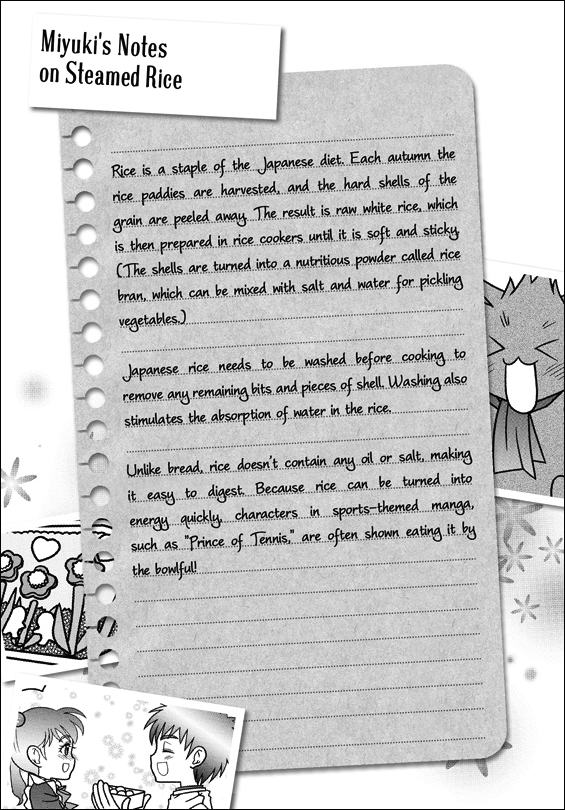 Miyuki's Notes
on Steamed Rice
Rice is a staple of the Japanese diet. Each autumn the
rice paddies are harvested, and the hard shells of the
grain are peeled away. The result is raw white rice, which
is then prepared in rice cookers until it is soft and sticky.
(The shells are turned into a nutritious powder called rice
bran, which can be mixed with salt and water for pickling
vegetables.)
Japanese rice needs to be washed before cooking to
remove any remaining bits and pieces of shell. Washing also
stimulates the absorption of water in the rice.
Unlike bread, rice doesn't contain any oil or salt, making
it easy to digest. Because rice can be turned into
energy quickly, characters in sports-themed manga,
such as "Prince of Tennis," are often shown eating it by
the bowlful!